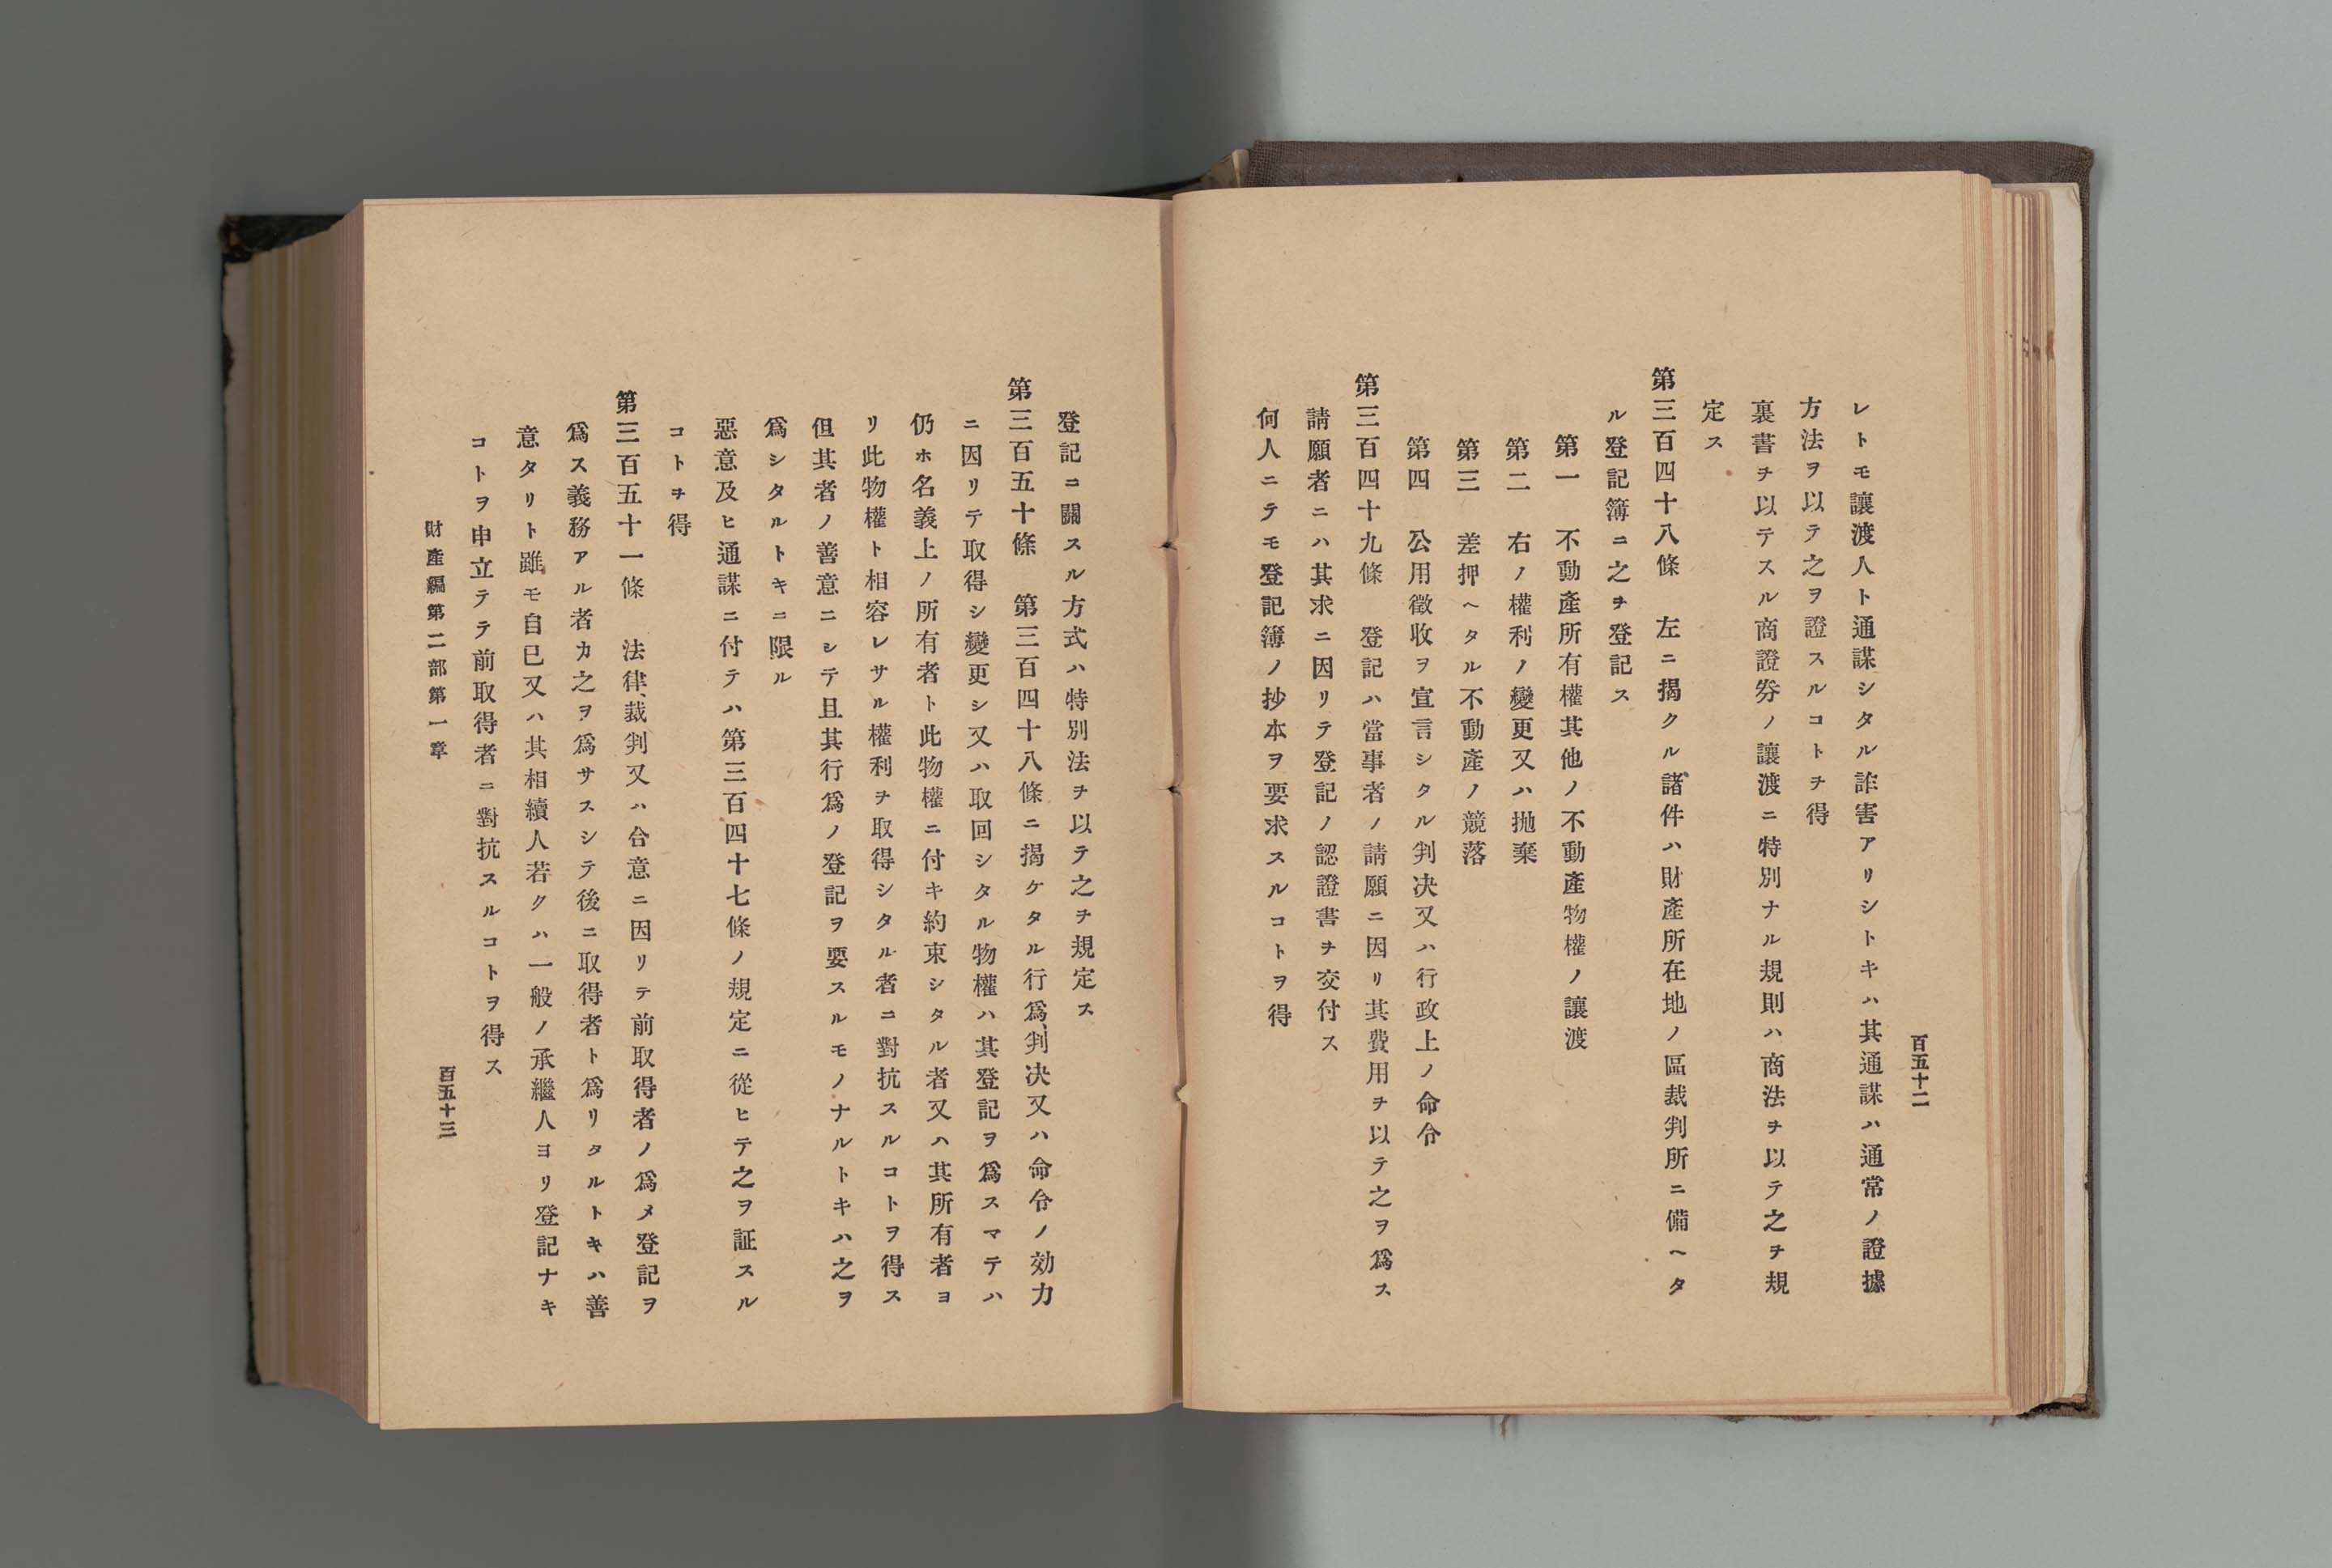 百五十二
レトモ讓渡人ト通謀シタル詐害アリシトキハ其通謀ハ通常ノ證據
方法ヲ以テ之ヲ證スルコトヲ得
裏書ヲ以テスル商證券ノ讓渡ニ特別ナル規則ハ商法ヲ以テ之ヲ規
定ス
第三百四十八條　左ニ揭クル諸件ハ財產所在地ノ區裁判所ニ備ヘタ
ル登記簿ニ之ヲ登記ス
第一　不動產所有權其他ノ不動產物權ノ讓渡
第二　右ノ權利ノ變更又ハ拋棄
第三　差押ヘタル不動產ノ競落
第四　公用徵收ヲ宣言シタル判决又ハ行政上ノ命令
第三百四十九條　登記ハ當事者ノ請願ニ因リ其費用ヲ以テ之ヲ爲ス
請願者ニハ其求ニ因リテ登記ノ認證書ヲ交付ス
何人ニテモ登記簿ノ抄本ヲ要求スルコトヲ得
登記ニ關スル方式ハ特別法ヲ以テ之ヲ規定ス
第三百五十條　第三百四十八條ニ揭ケタル行爲、判决又ハ命令ノ効力
ニ因リテ取得シ變更シ又ハ取回シタル物權ハ其登記ヲ爲スマテハ
仍ホ名義上ノ所有者ト此物權ニ付キ約束シタル者又ハ其所有者ヨ
リ此物權ト相容レサル權利ヲ取得シタル者ニ對抗スルコトヲ得ス
但其者ノ善意ニシテ且其行爲ノ登記ヲ要スルモノナルトキハ之ヲ
爲シタルトキニ限ル
惡意及ヒ通謀ニ付テハ第三百四十七條ノ規定ニ從ヒテ之ヲ証スル
コトヲ得
第三百五十一條　法律、裁判又ハ合意ニ因リテ前取得者ノ爲メ登記ヲ
爲ス義務アル者カ之ヲ爲サスシテ後ニ取得者ト爲リタルトキハ善
意タリト雖モ自己又ハ其相續人若クハ一般ノ承繼人ヨリ登記ナキ
コトヲ申立テテ前取得者ニ對抗スルコトヲ得ス
財產編第二部第一章
百五十三